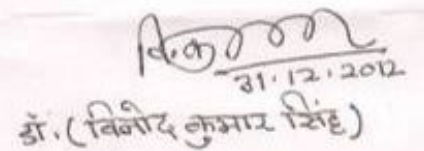 वि.कु
31.12.2012
डॉ. (विनोद कुमार सिंह)